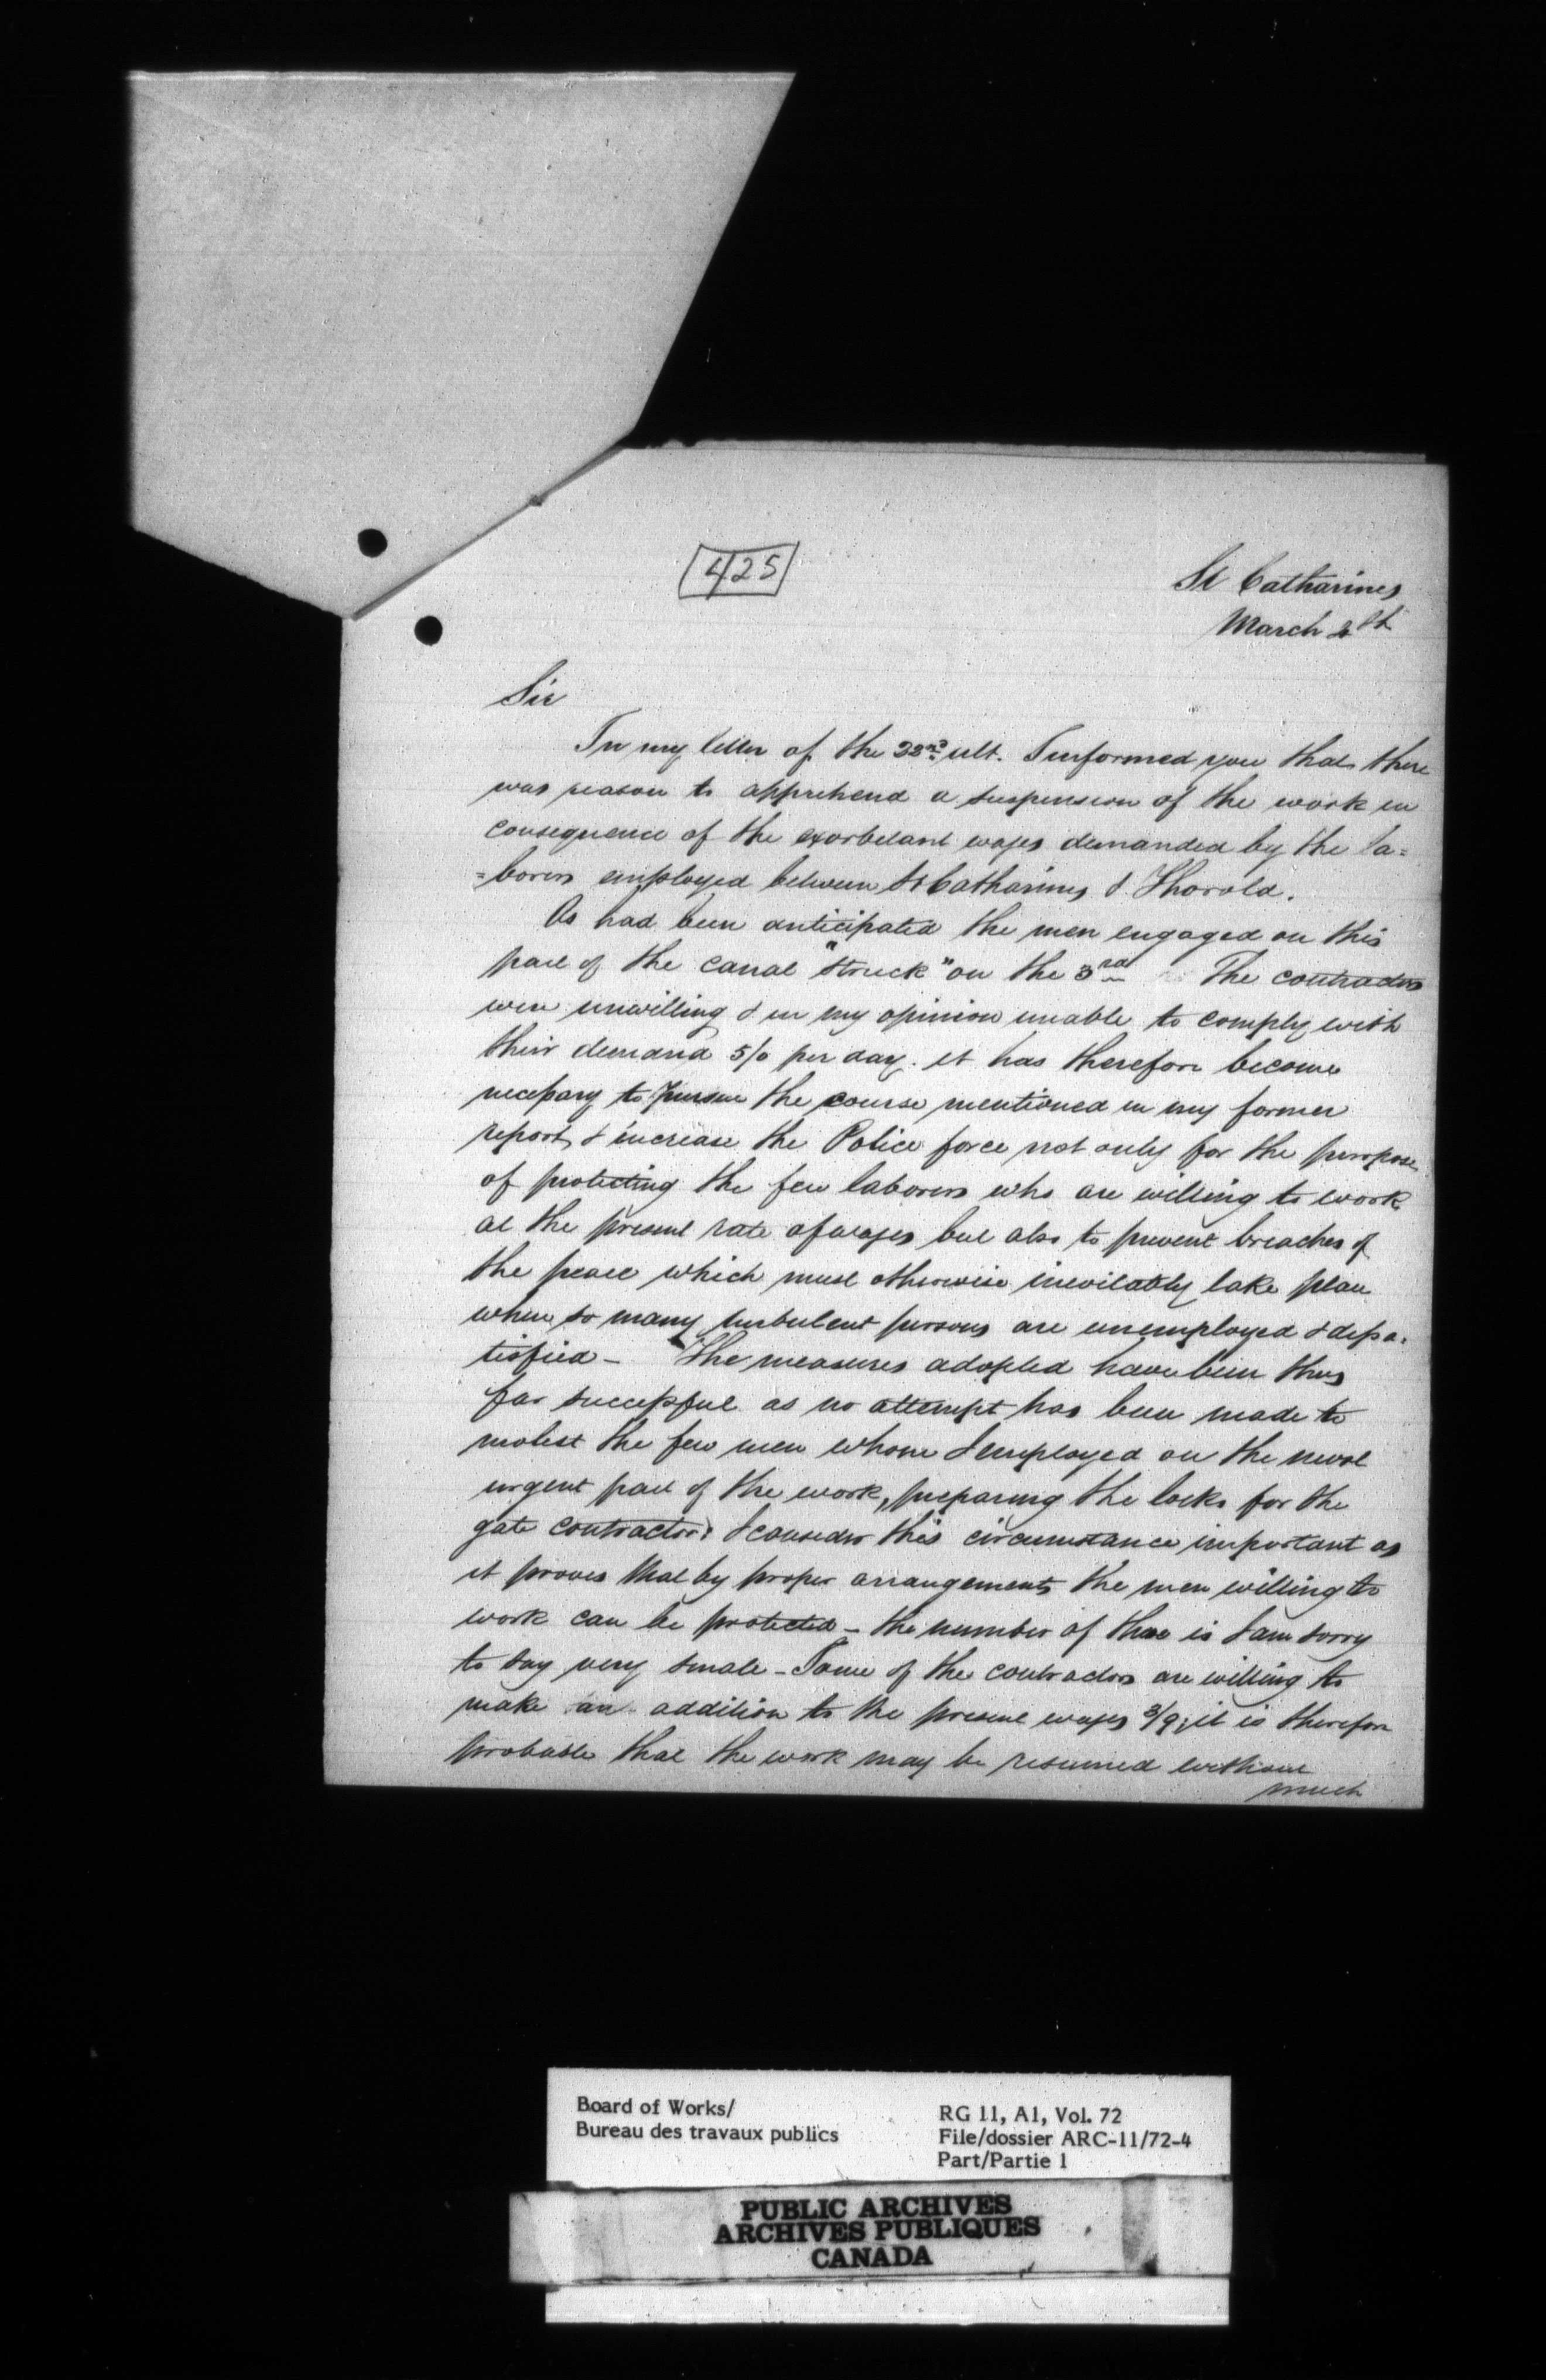 425
St Catharines
March 4th
Sir
In my letter of the 22nd ult. I informed you that there
was reason to apprehend a suspension of the work in
consequence of the exorbitant wages demanded by the la=
=borers employed between St Catharines & Thorold.
As had been anticipated the men engaged on this
part of the canal "struck" on the 3rd The contractors
were unwilling & in my opinion unable to comply with
their demand 5/0 per day. it has therefore become
necessary to pursue the course mentioned in my former
report & increase the Police force not only for the purpose
of protecting the few laborers who are willing to work
at the present rate of wages but also to prevent breaches of
the peace which must otherwise inevitably take place
when so many turbulent persons are unemployed & dissa=
tisfied - The measures adopted have been thus
far successful as no attempt has been made to
molest the few men whom I employed on the most
urgent part of the work, preparing the locks for the
gate contractors I consider this circumstance important as
it proves that by proper arrangements the men willing to
work can be protected - the number of these is I am sorry
to say very small - Some of the contractors are willing to
make an addition to the present wages 3/9; it is therefore
probable that the work may be resumed without
much
Board of Works/
Bureau des travaux publics
RG 11, A1, Vol. 72
File/dossier ARC-11/72-4
Part/Partie 1
PUBLIC ARCHIVES
ARCHIVES PUBLIQUES
CANADA